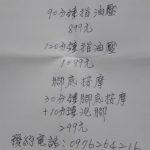 90分鐘指油壓
899元
120分鐘指油壓
1099元
腳底按摩
30分鐘腳底按摩
+10分鐘泡腳
299元
預約電話:0976264216